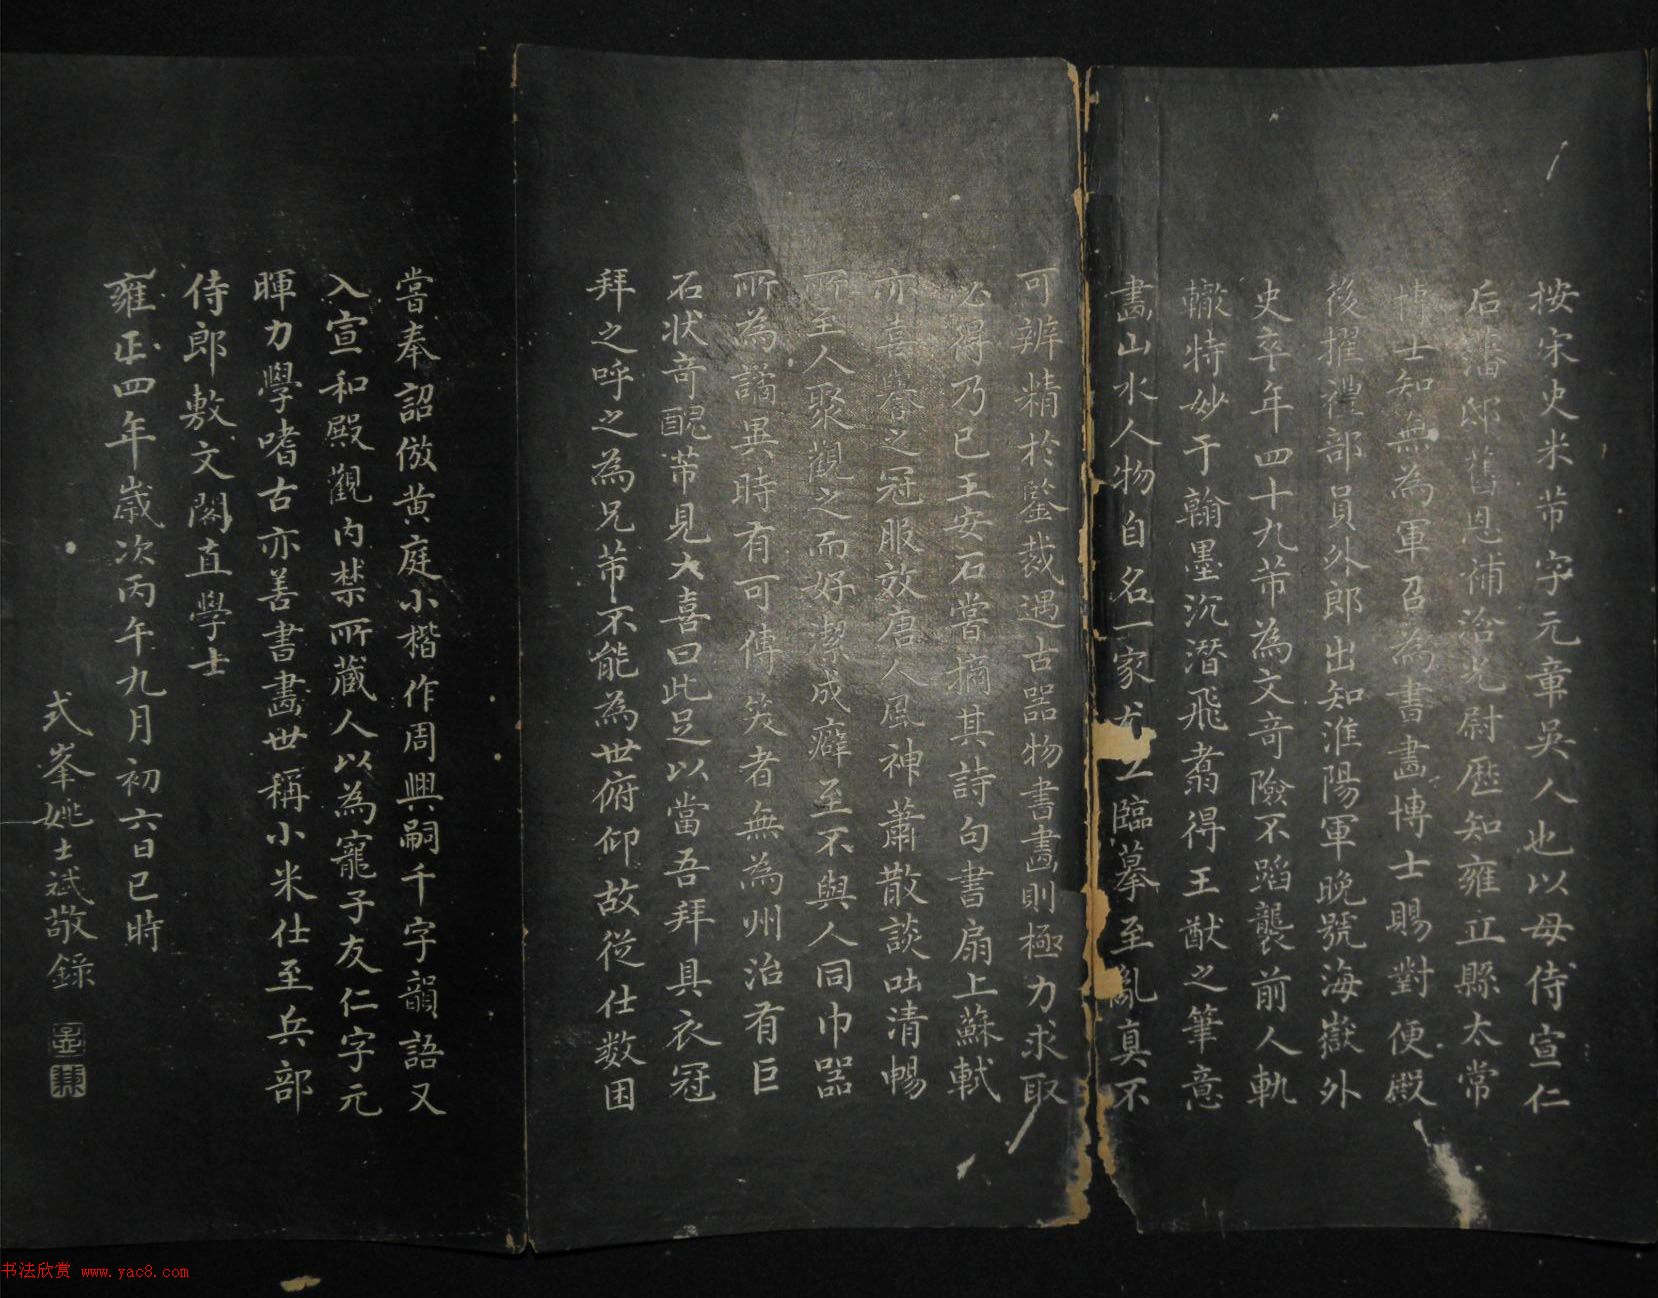 按宋史米芾字元章吳人也以母侍宣仁
后藩邸舊恩補洽光尉歷知雍丘縣太常
博士知無為軍召為書畫博士賜對便殿
後擢禮部員外郎出知淮陽軍晚號海嶽外
史卒年四十九芾為文奇險不蹈襲前人軌
轍特妙于翰墨沉潛飛翥得王獻之筆意
畫山水人物自名一家尤工臨摹至亂真不
可辨精於鑒裁遇古器物書畫則極力求取
必得乃已王安石嘗摘其詩句書扇上蘇軾
亦喜譽之冠服效唐人風神蕭散談吐清暢
所至人聚觀之而好潔成癖至不與人同巾器
所為譎異時有可傳笑者無為州治有巨
石狀奇醜芾見大喜曰此足以當吾拜具衣冠
拜之呼之為兄芾不能為世俯仰故從仕数困
嘗奉詔倣黄庭小楷作周興嗣千字韻語又
入宣和殿觀内禁所藏人以為寵子友仁字元
暉力學嗜古亦善書畫世稱小米仕至兵部
侍郎敷文閣直學士
雍正四年歲次丙午九月初六日巳時
式峯姚士斌敬錄
书法欣赏 www.yac8.com